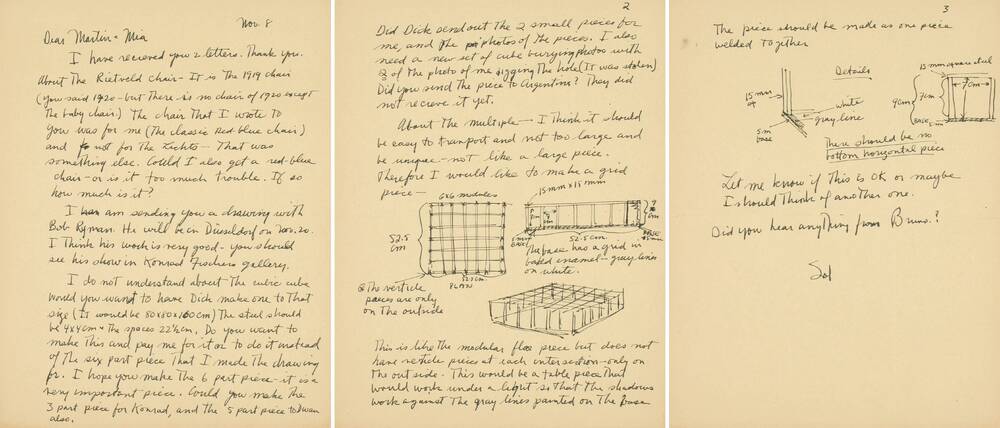 Nov. 8
Dear Martin + Mia
I have received your 2 letters. Thank you.
About the Rietveld chair - It is the 1919 chair
(You said 1920 - but there is no chair of 1920 except
the baby chair.) The chair that I wrote to
you was for me (the classic red-blue chair)
and not for the Lichts - That was
something else. Could I also get a red-blue
chair - or is it too much trouble. If so
how much is it?
I am sending you a drawing with
Bob Ryman. He will be in Düsseldorf on Nov. 20.
I think his work is very good - you should
see his show in Konrad Fischers gallery.
I do not understand about the cubic cube
would you want to have Dick make one to that
size (It would be 80x80x160cm) The steel should
be 4x4cm + the spaces 22½cm. Do you want to
make this and pay me for it or to do it instead
of the six part piece that I made the drawing
for. I hope you make the 6 part piece - it is a
very important piece. Could you make the
3 part piece for Konrad, and the 5 part piece to Dwan
also.
2
Did Dick send out the 2 small pieces for
me, and the photos of the pieces. I also
need a new set of cube burying photos with
2 of the photo of me digging the hole (It was stolen)
Did you send the piece to Argentina? They did
not recieve it yet.
About the multiple - I think it should
be easy to tranport and not too large and
be unique - not like a large piece.
Therefore I would like to make a grid
piece -
6x6 modules
15mm x 15mm
52.5
cm
52.5cm
PLAN
7
cm
5mm
BASE
52.5cm.
BASE
The base has a grid in
baked enamel - gray lines
on white.
The verticle
pieces are only
on the outside
This is like the modular floor piece but does not
have verticle pieces at each intersection - only on
the outside. This would be a table piece that
would work under a light so that the shadows
work against the gray lines painted on the base
3
The piece should be made as one piece
welded together
Details
15mm square steel
15mm
white
gray line
5m
base
9cm
7cm
7cm
BASE
There should be no
bottom horizontal piece
Let me know if this is OK or maybe
I should think of another one.
Did you hear anything from Bruno?
Sol